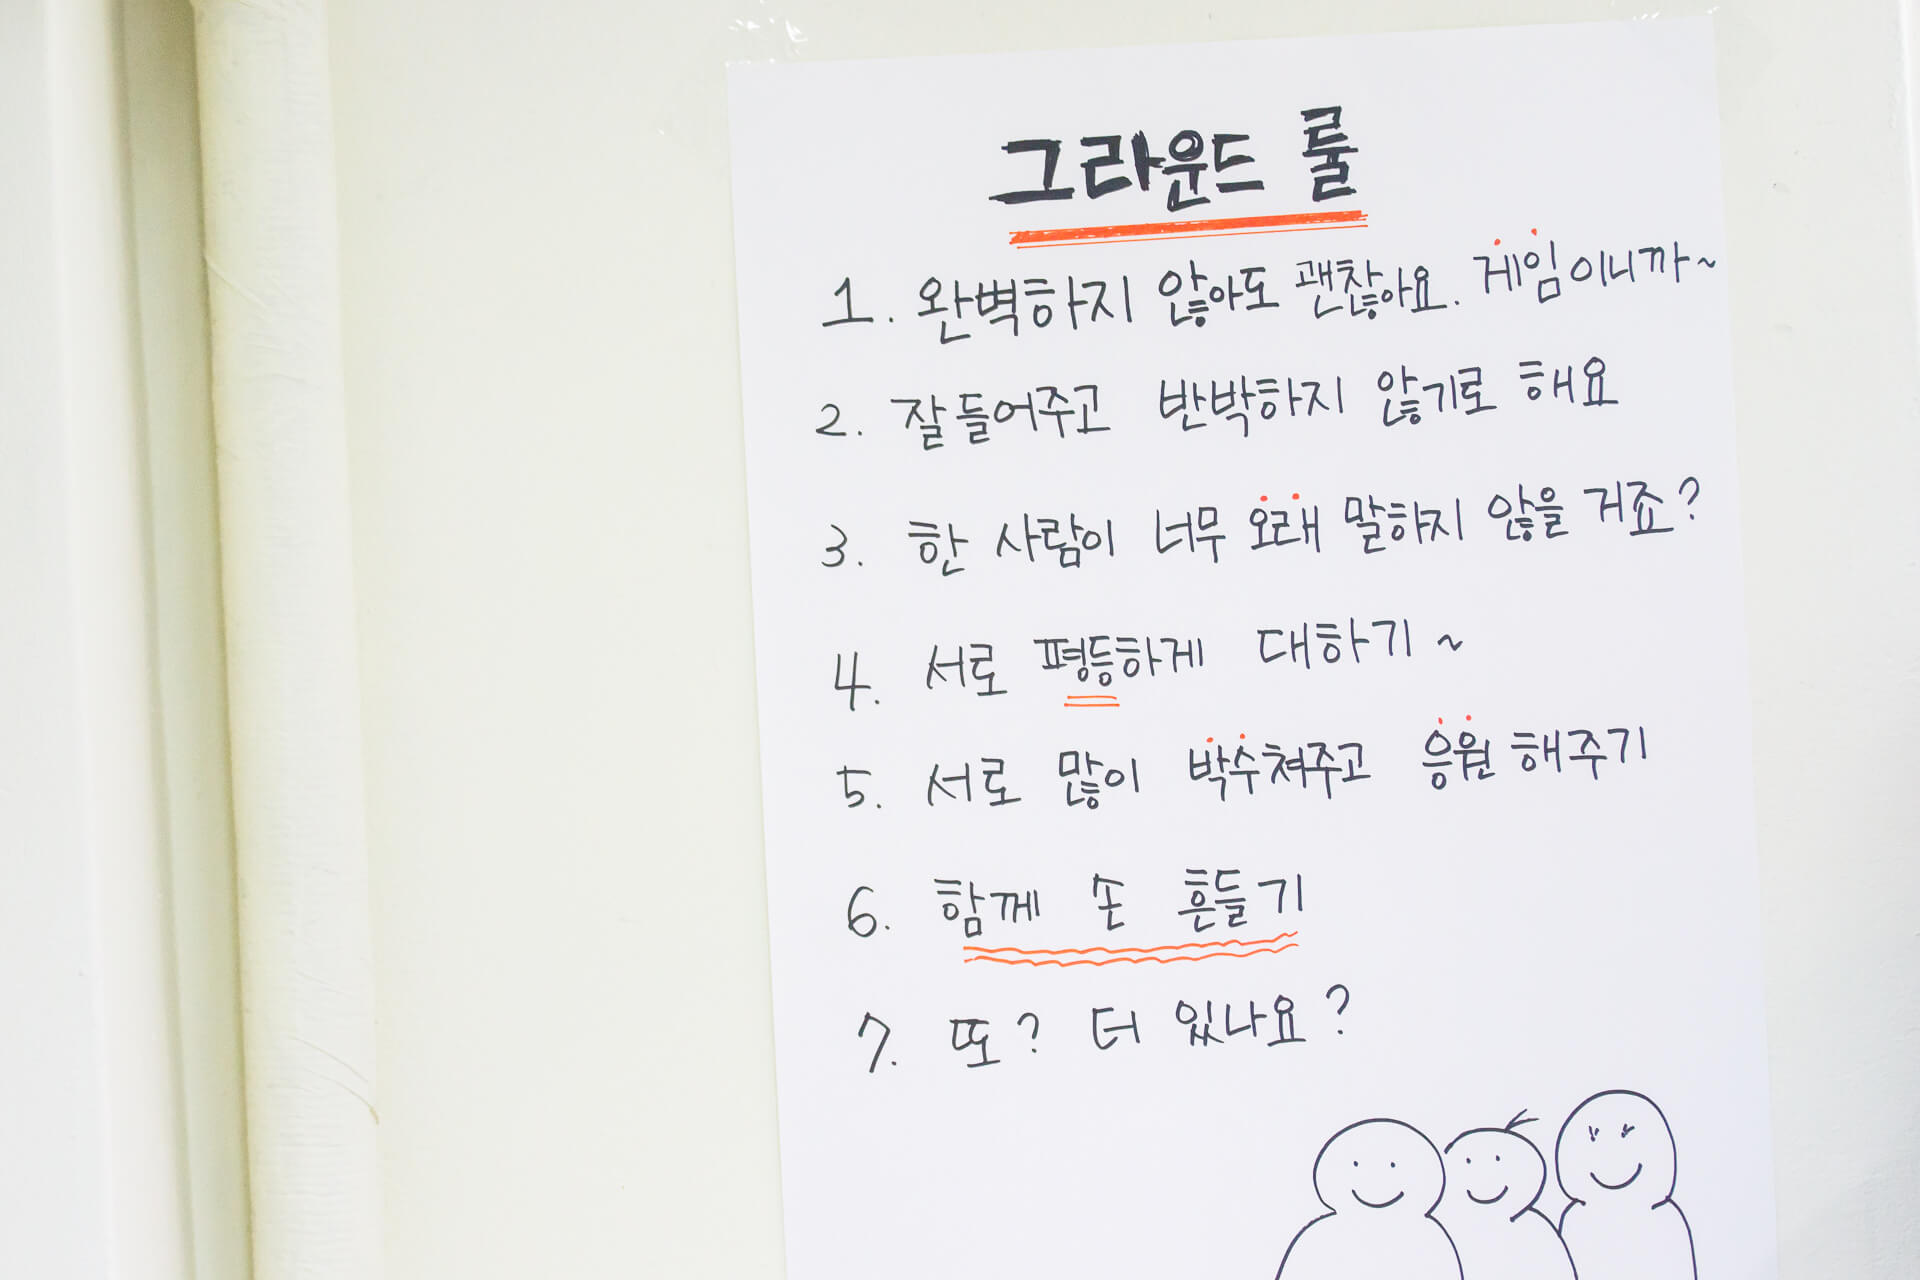 그라운드 룰
1. 완벽하지 않아도 괜찮아요. 게임이니까~
2. 잘 들어주고 반박하지 않기로 해요
3. 한 사람이 너무 오래 말하지 않을 거죠?
4. 서로 평등하게 대하기~
5. 서로 많이 박수쳐주고 응원 해주기
6. 함께 손 흔들기
7. 또? 더 있나요?